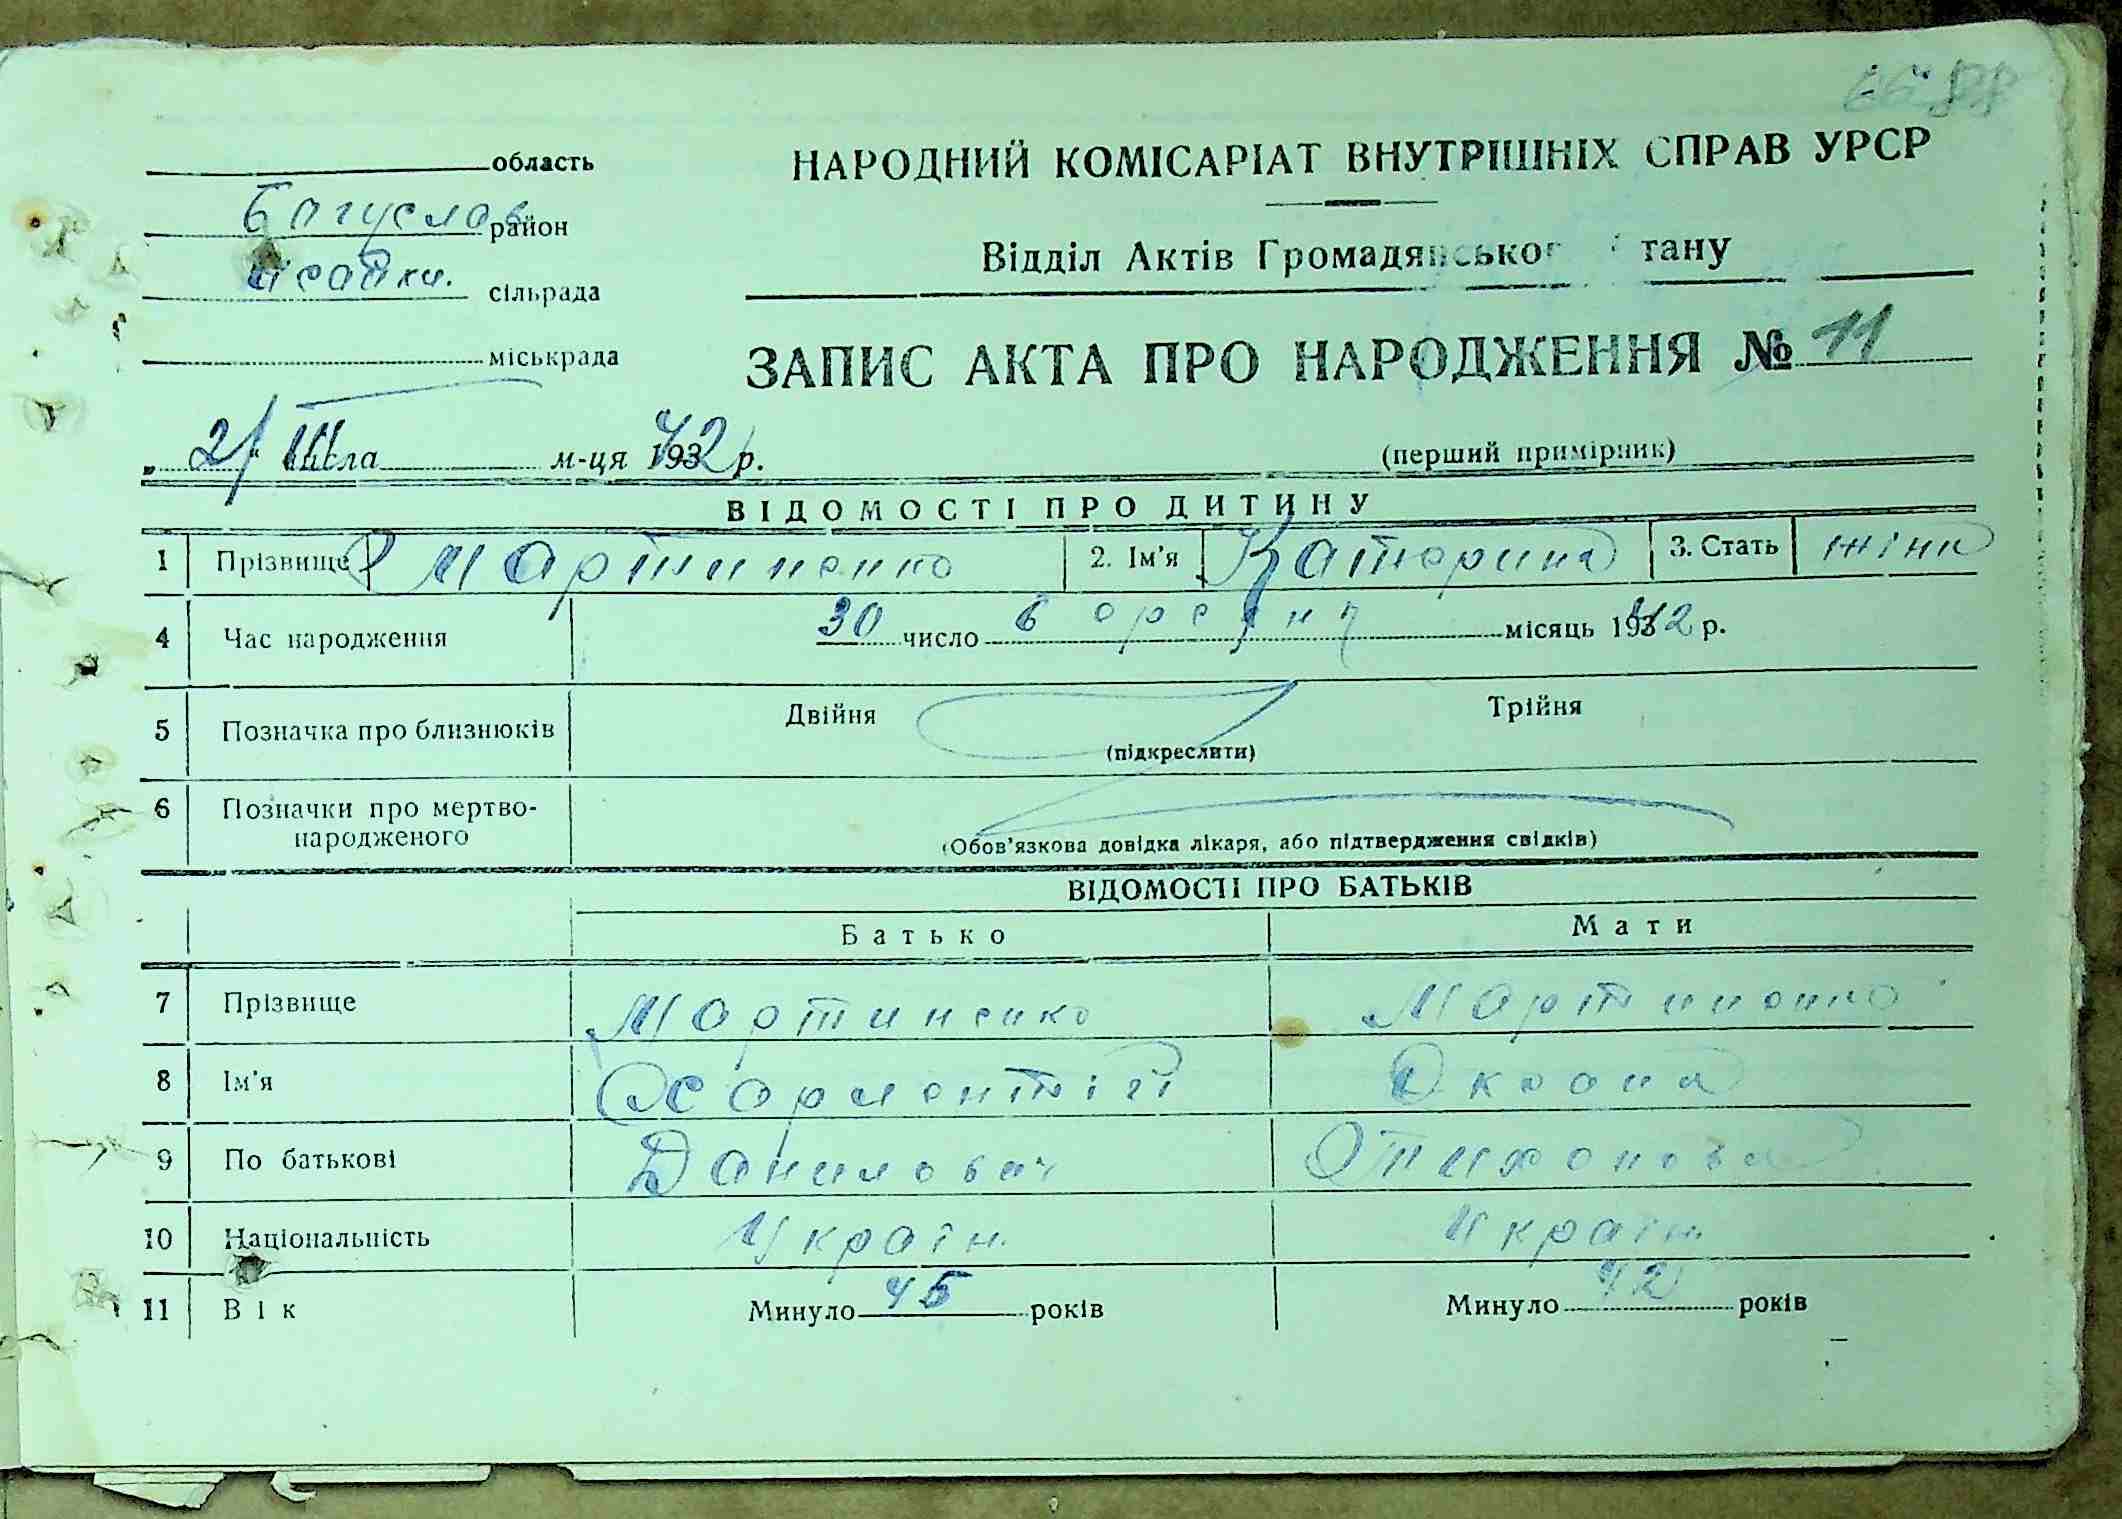 область
НАРОДНИЙ КОМІСАРІАТ ВНУТРІШНІХ СПРАВ УРСР
Богуслав район
Ісайки. сільрада
Відділ Актів Громадянськог тану
міськрада
ЗАПИС АКТА ПРО НАРОДЖЕННЯ № 11
„2/ III числа м-ця 1942 р.
(перший примірник)
ВІДОМОСТІ ПРО ДИТИНУ
1 Прізвище Мартиненко 2. Ім'я Катерина 3. Стать жіно
4 Час народження 30 число березня місяць 1942 р.
5 Позначка про близнюків Двійня Трійня
(підкреслити)
6 Позначки про мертво-
народженого
(Обов'язкова довідка лікаря, або підтвердження свідків)
ВІДОМОСТІ ПРО БАТЬКІВ
Батько Мати
7 Прізвище Мартиненко Мартиненко
8 Ім'я
9 По батькові Данилович
10 Національність Україн. Україн.
11 Вік Минуло 45 років Минуло 42 років